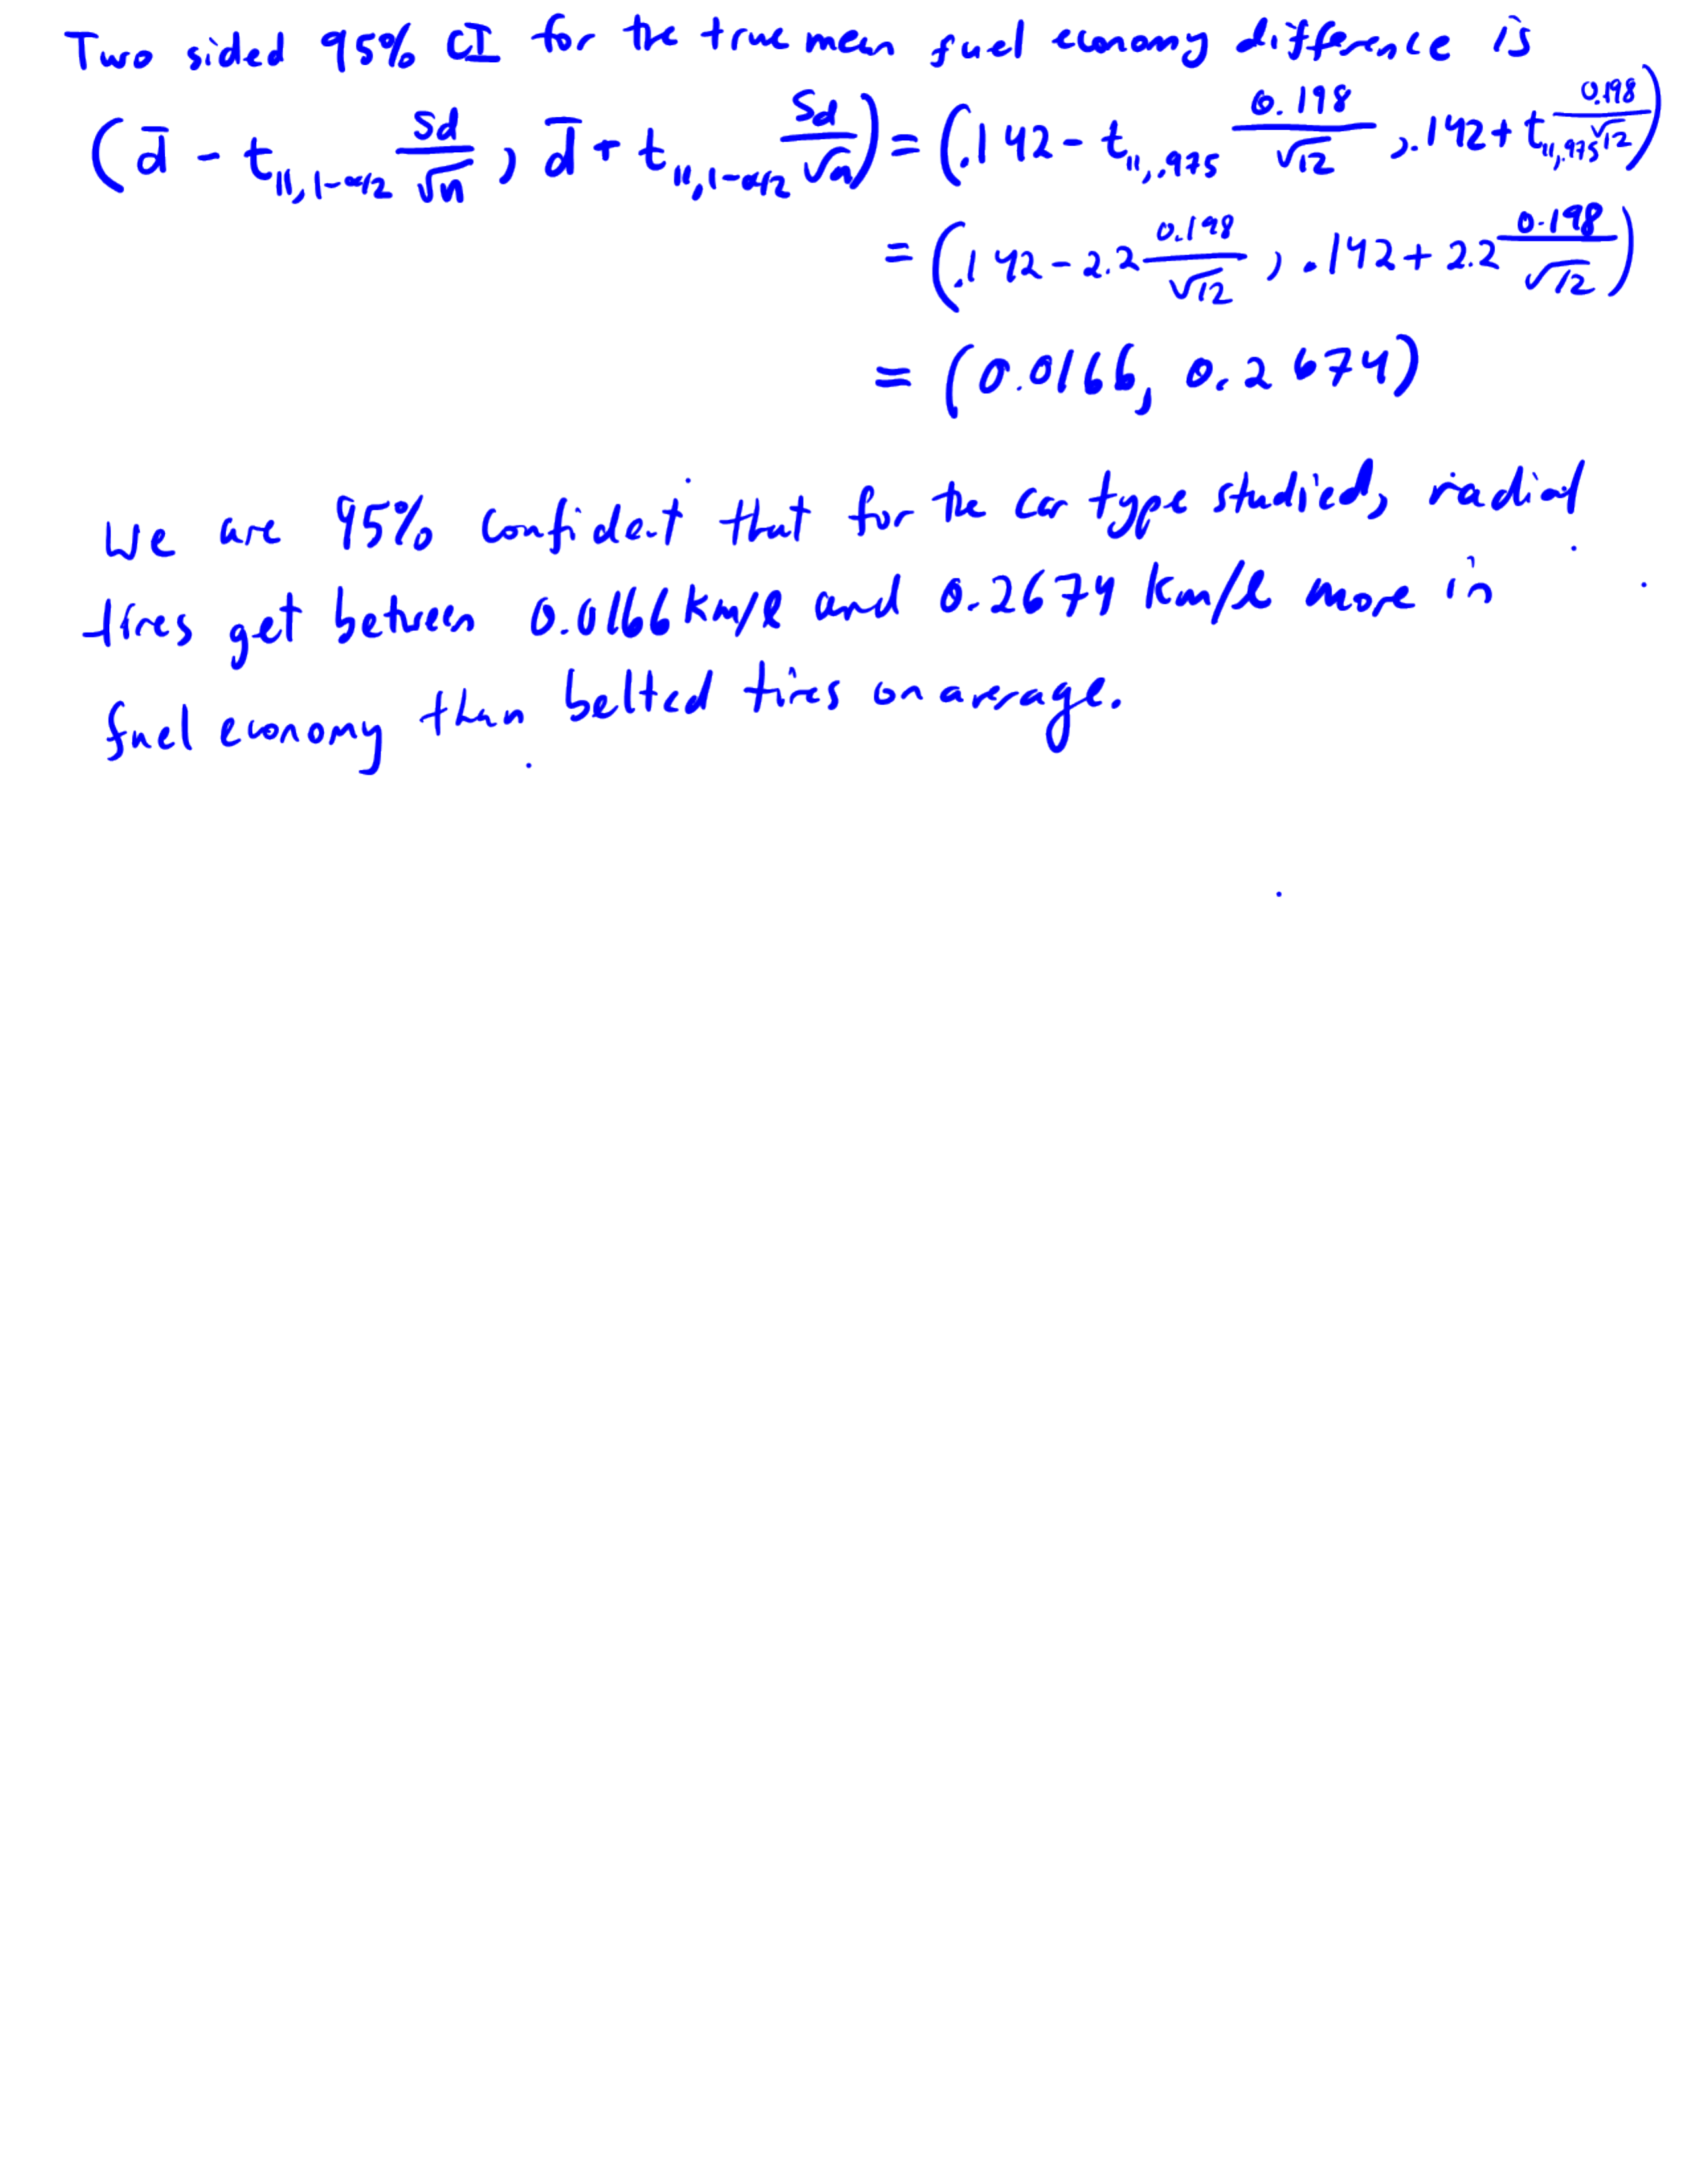 Two sided 95% CI for the true mean fuel economy difference is
(d̄ - t₁₁,₁₋α/₂ Sd/√n, d̄ + t₁₁,₁₋α/₂ Sd/√n) = (.142 - t₁₁,.₉₇₅ 0.198/√12, .142 + t₁₁,.₉₇₅ 0.198/√12)
= (.142 - 2.2 0.198/√12, .142 + 2.2 0.198/√12)
= (0.0166, 0.2674)
We are 95% confident that for the car type studied, radial
tires get between 0.0166 km/l and 0.2674 km/l more in
fuel economy than belted tires on average.